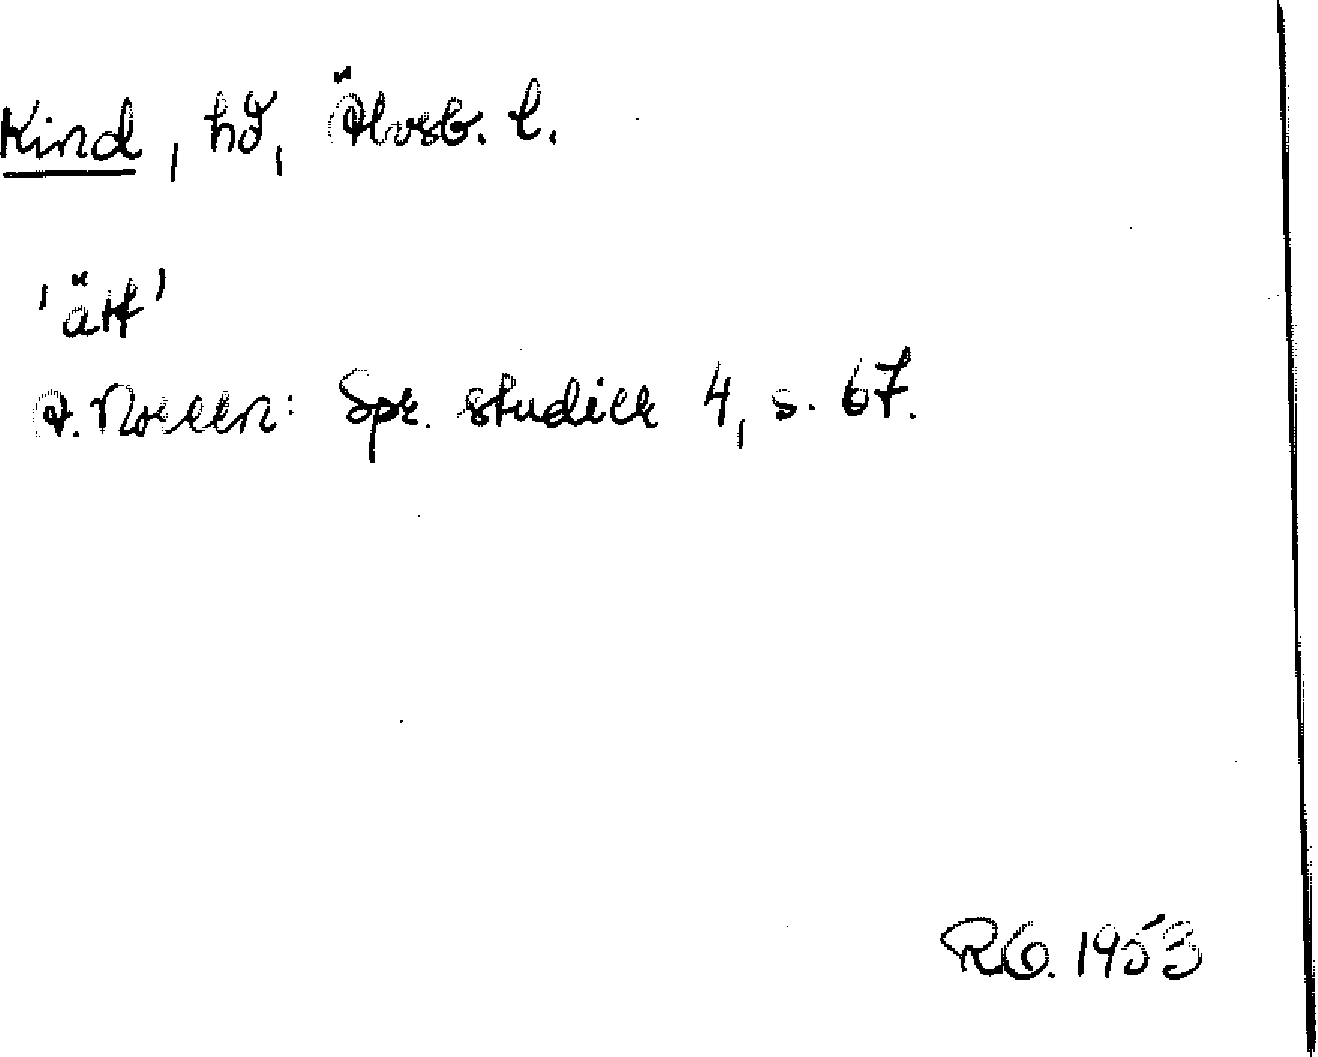 Kind, hd, Älvsb. l.
'ätt'
A. Noreen: Spr. studier 4, s. 67.
RG. 1953